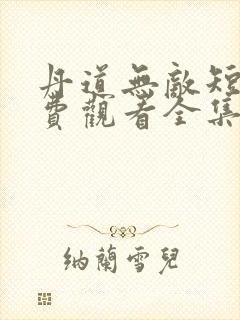 丹道無敵短
費觀看全集
納蘭雪兒